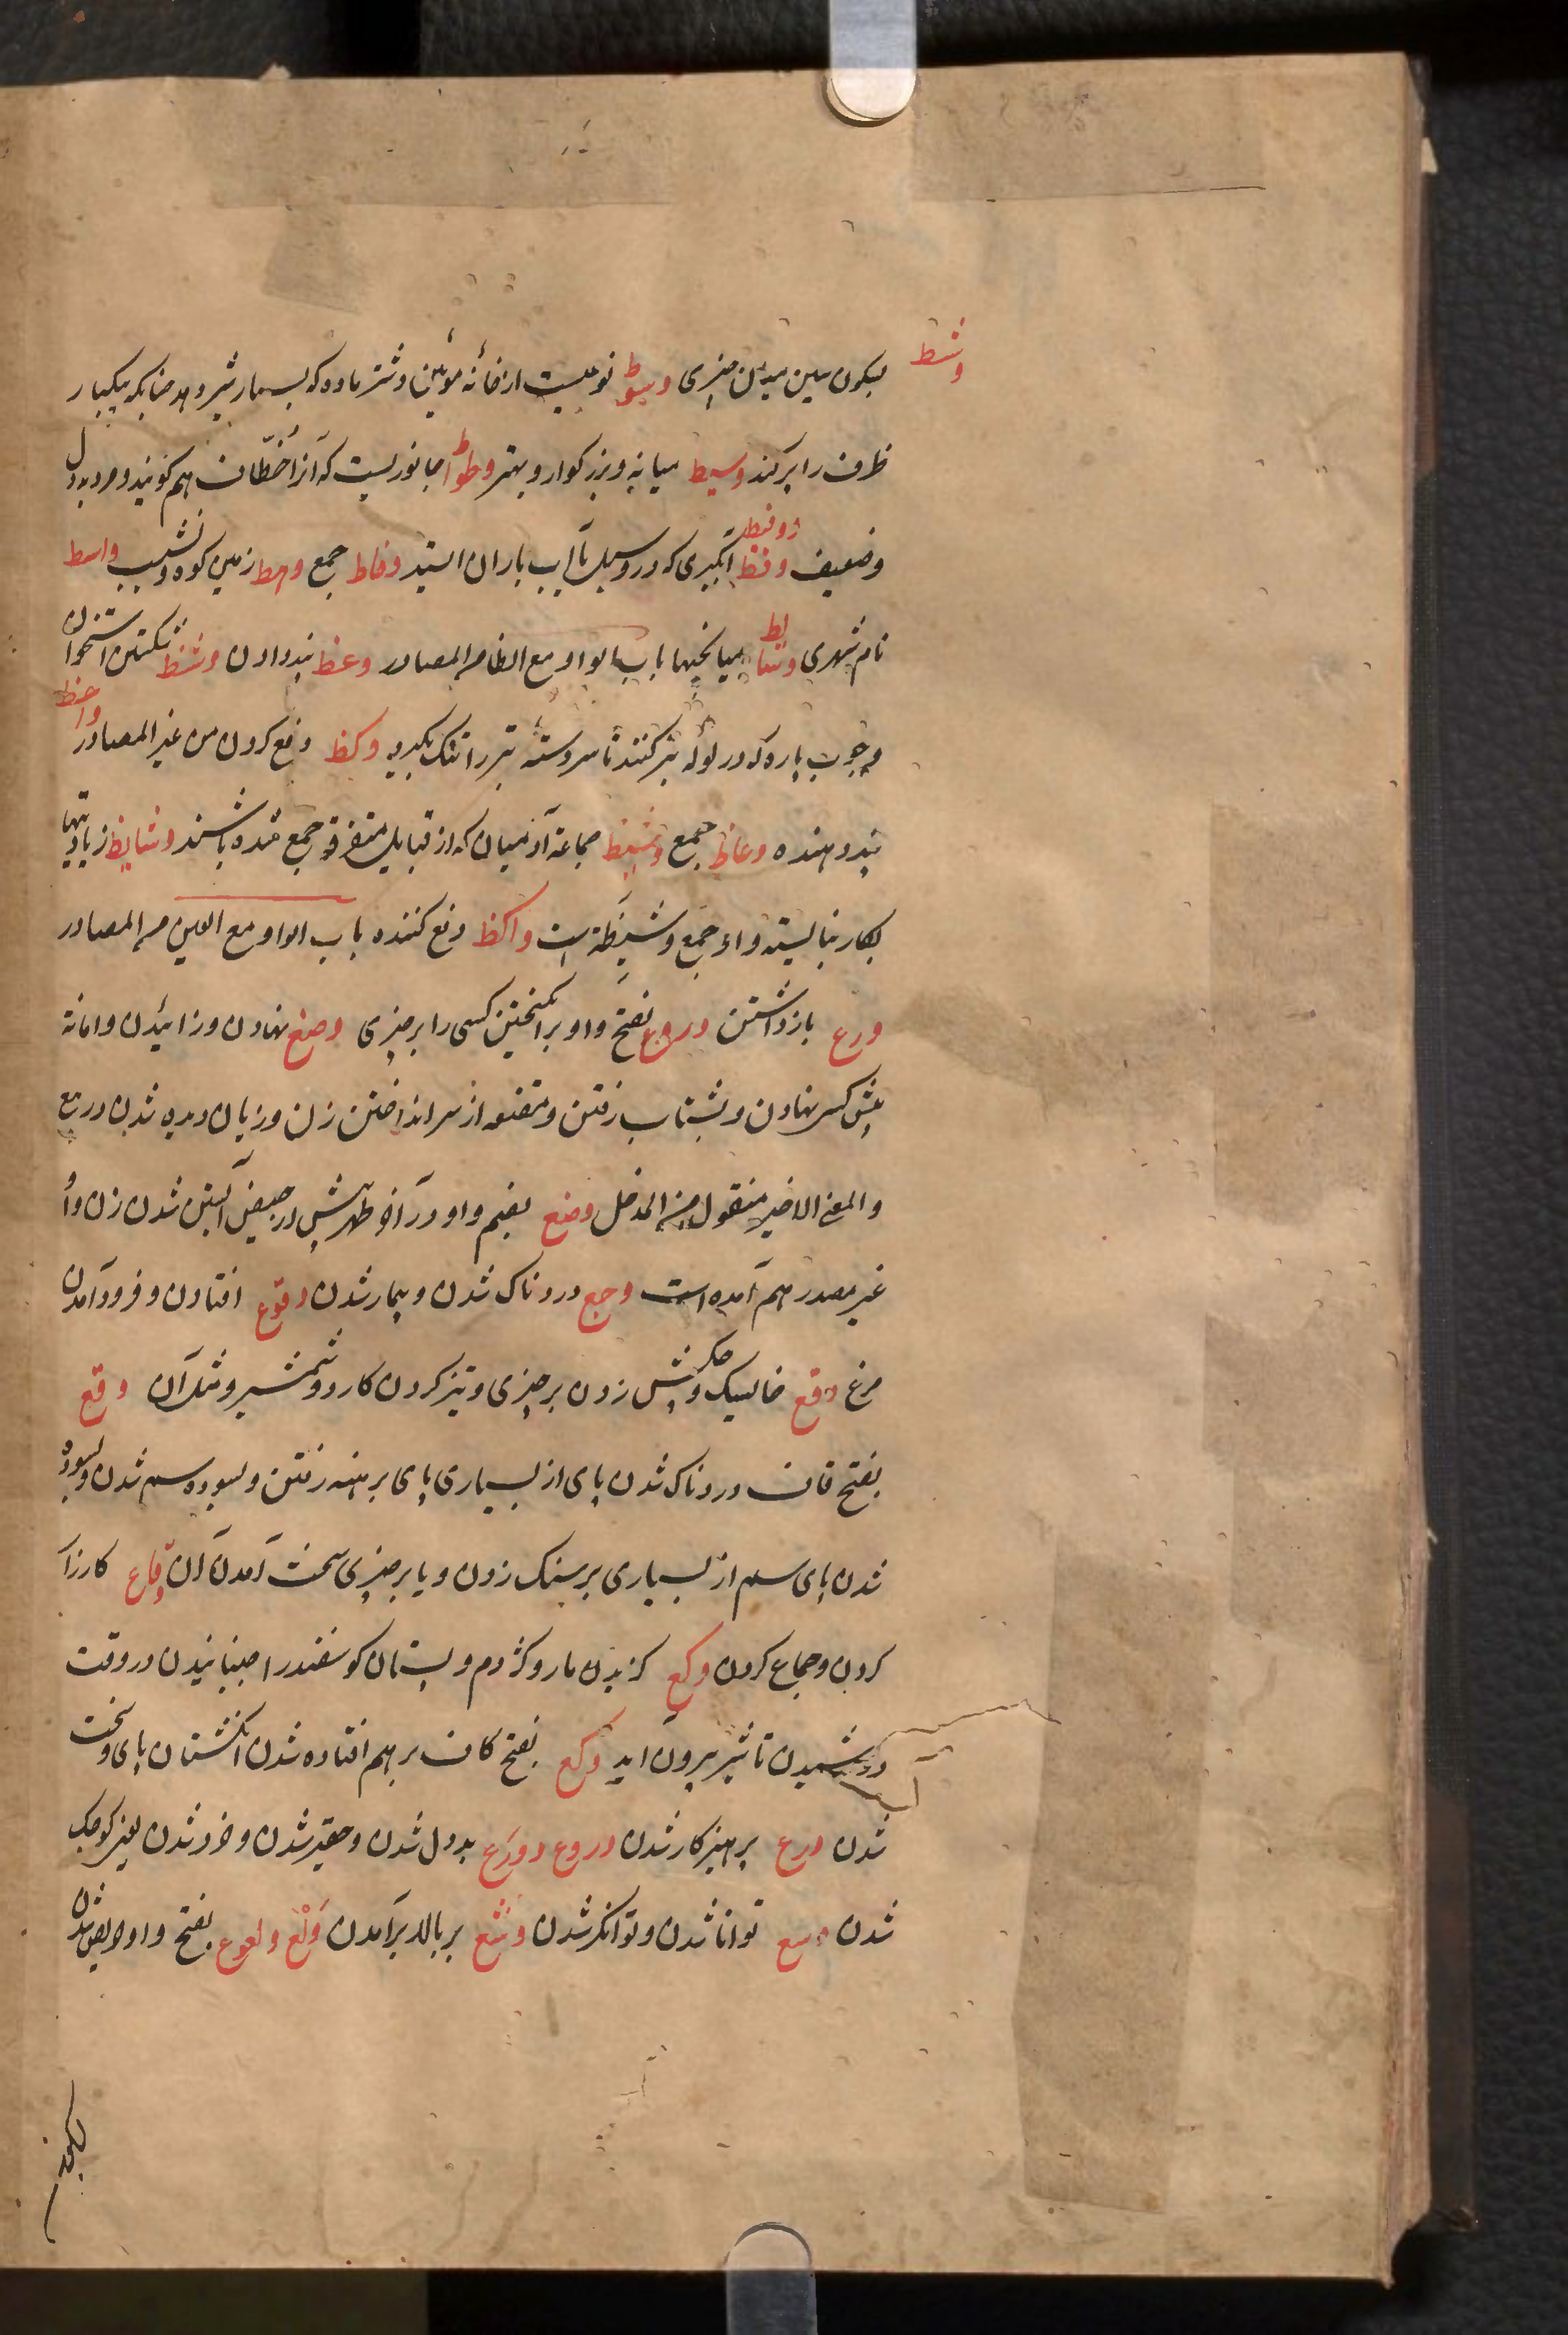 وسط
بسکون سین میان چیزی وسوط نوعیست از خانهٔ موئین و شتر ماده که بسیار شیر دهد چنانکه بیکبار
ظرف را پر کند وسیط میانه و بزرگوار و بهتر وطواط جانوریست که آنرا خطاف هم گویند و مرد بددل
وضعیف وقط وقیط آبگیری که در و سیل تا آب باران ایستد وقاط جمع وهط زمین کوه و نشیب واسط
نام شهری وسائط میانجیها باب الواو مع الظاء من المصادر وعظ پند دادن وشظ شکستن استخوان
و چوب پاره که در لوله تبر کنند تا سر دسته تبر را تنگ بگیرد وکظ دفع کردن من غیر المصادر واعظ
پند دهنده وعاظ جمع وشیظ جماعهٔ آدمیان که از قبایل متفرق جمع شده باشند وشایظ زیادتیها
بکار نبایسته و او جمع وشیظة است واکظ دفع کننده باب الواو مع العین من المصادر
ورع بازداشتن وروع بفتح واو برانگیختن کسی را بر چیزی وضع نهادن و زائیدن و امانة
پیش کس نهادن و بشتاب رفتن و مقنعه از سر انداختن زن و زیان دیده شدن در بیع
والمعنی الاخیر منقول من المدخل وضع بضم واو در آخر طهر پیش در حیض آبستن شدن زن و او
غیر مصدر هم آمده است وجع دردناک شدن و بیمار شدن وقوع افتادن و فرود آمدن
مرغ وقع خایسک و چکش زدن بر چیزی و تیز کردن کارد و شمشیر و مثل آن وقع
بفتح قاف دردناک شدن پای از بسیاری پای برهنه رفتن و سوده سم شدن و سوده
شدن پای سم از بسیاری بر سنگ زدن و یا بر چیزی سخت آمدن آن وقاع کارزار
کردن و جماع کردن وکع گزیدن مار و کژدم و پستان گوسفند را جنبانیدن در وقت
دوشیدن تا شیر بیرون آید وکع بفتح کاف بر هم افتاده شدن انگشتان پای و سخت
شدن ورع پرهیزکار شدن وروع وورع بددل شدن و حقیر شدن و خرد شدن یعنی کوچک
شدن وسع توانا شدن و توانگر شدن وشع بر بالا برآمدن ولع ولوع بفتح واو حریص شدن